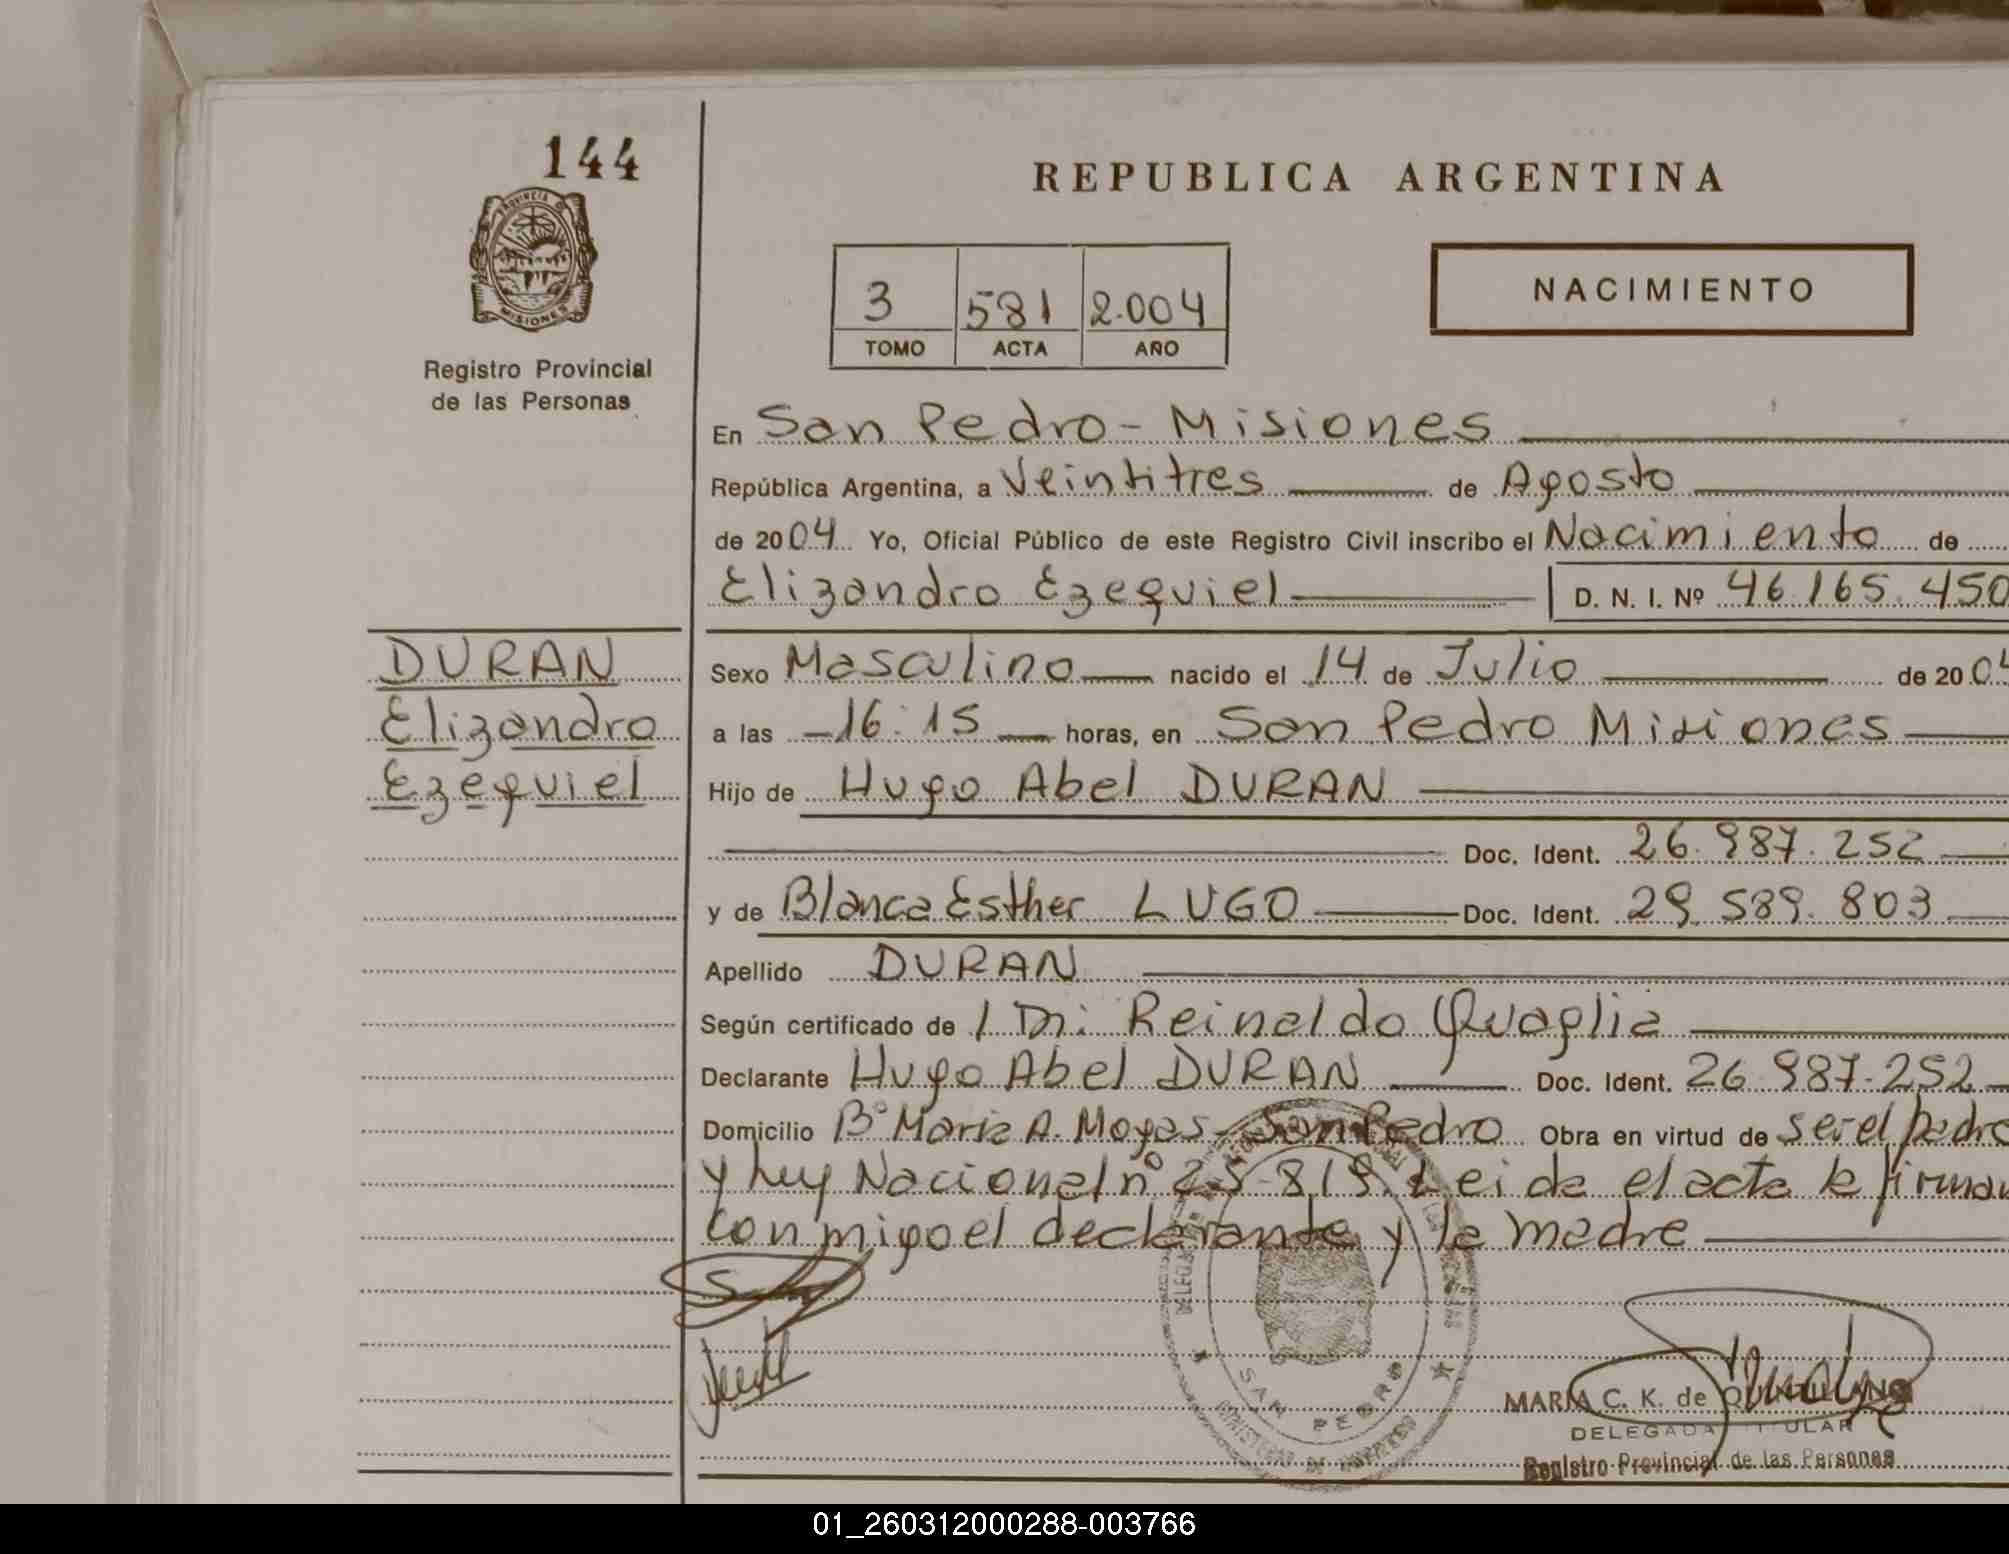 144
REPUBLICA ARGENTINA
PROVINCIA DE
MISIONES
Registro Provincial
de las Personas
3 581 2.004
TOMO ACTA AÑO
NACIMIENTO
En San Pedro - Misiones
República Argentina, a Veintitres de Agosto
de 2004 Yo, Oficial Público de este Registro Civil inscribo el Nacimiento de
Elizandro Ezequiel D. N. I. Nº 46.165.450
DURAN
Elizandro
Ezequiel
Sexo Masculino nacido el 14 de Julio de 2004
a las -16:15 horas, en San Pedro Misiones
Hijo de Hugo Abel DURAN
Doc. Ident. 26.987.252
y de Blanca Esther LUGO Doc. Ident. 29.589.803
Apellido DURAN
Según certificado de Reinaldo Quaglia
Declarante Hugo Abel DURAN Doc. Ident. 26.987.252
Domicilio Bº Maria A. Moyas - San Pedro Obra en virtud de ser el padre
y Ley Nacional nº 25-819. Leida el acta la firman
conmigo el declarante y la madre
SAN PEDRO
MARIA C. K. de QUINTILLANO
DELEGADA TITULAR
Registro Provincial de las Personas
01_260312000288-003766